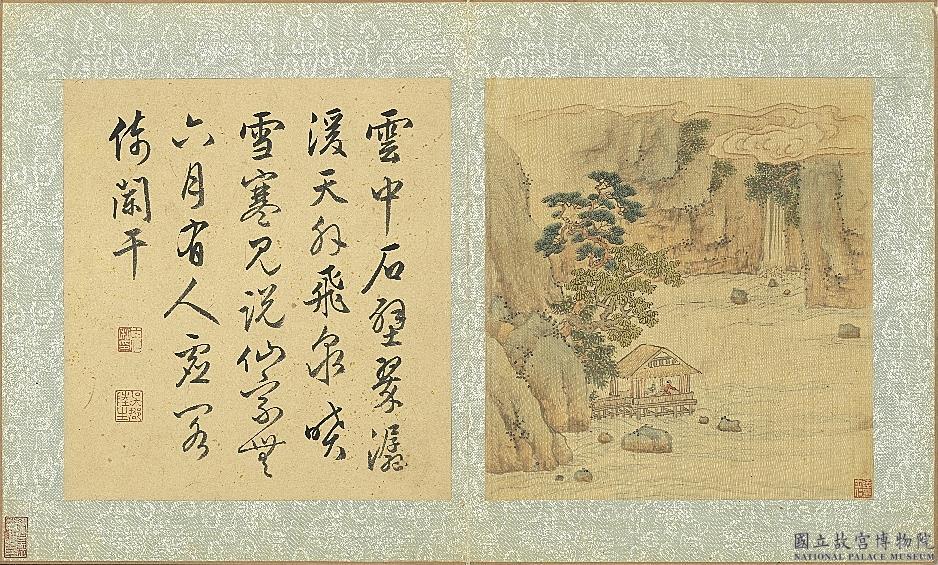 雲中石壁翠潺
湲天外飛泉暎
雪寒見說仙家無
六月有人虛閣
倚闌干
國立故宮博物院
NATIONAL PALACE MUSEUM